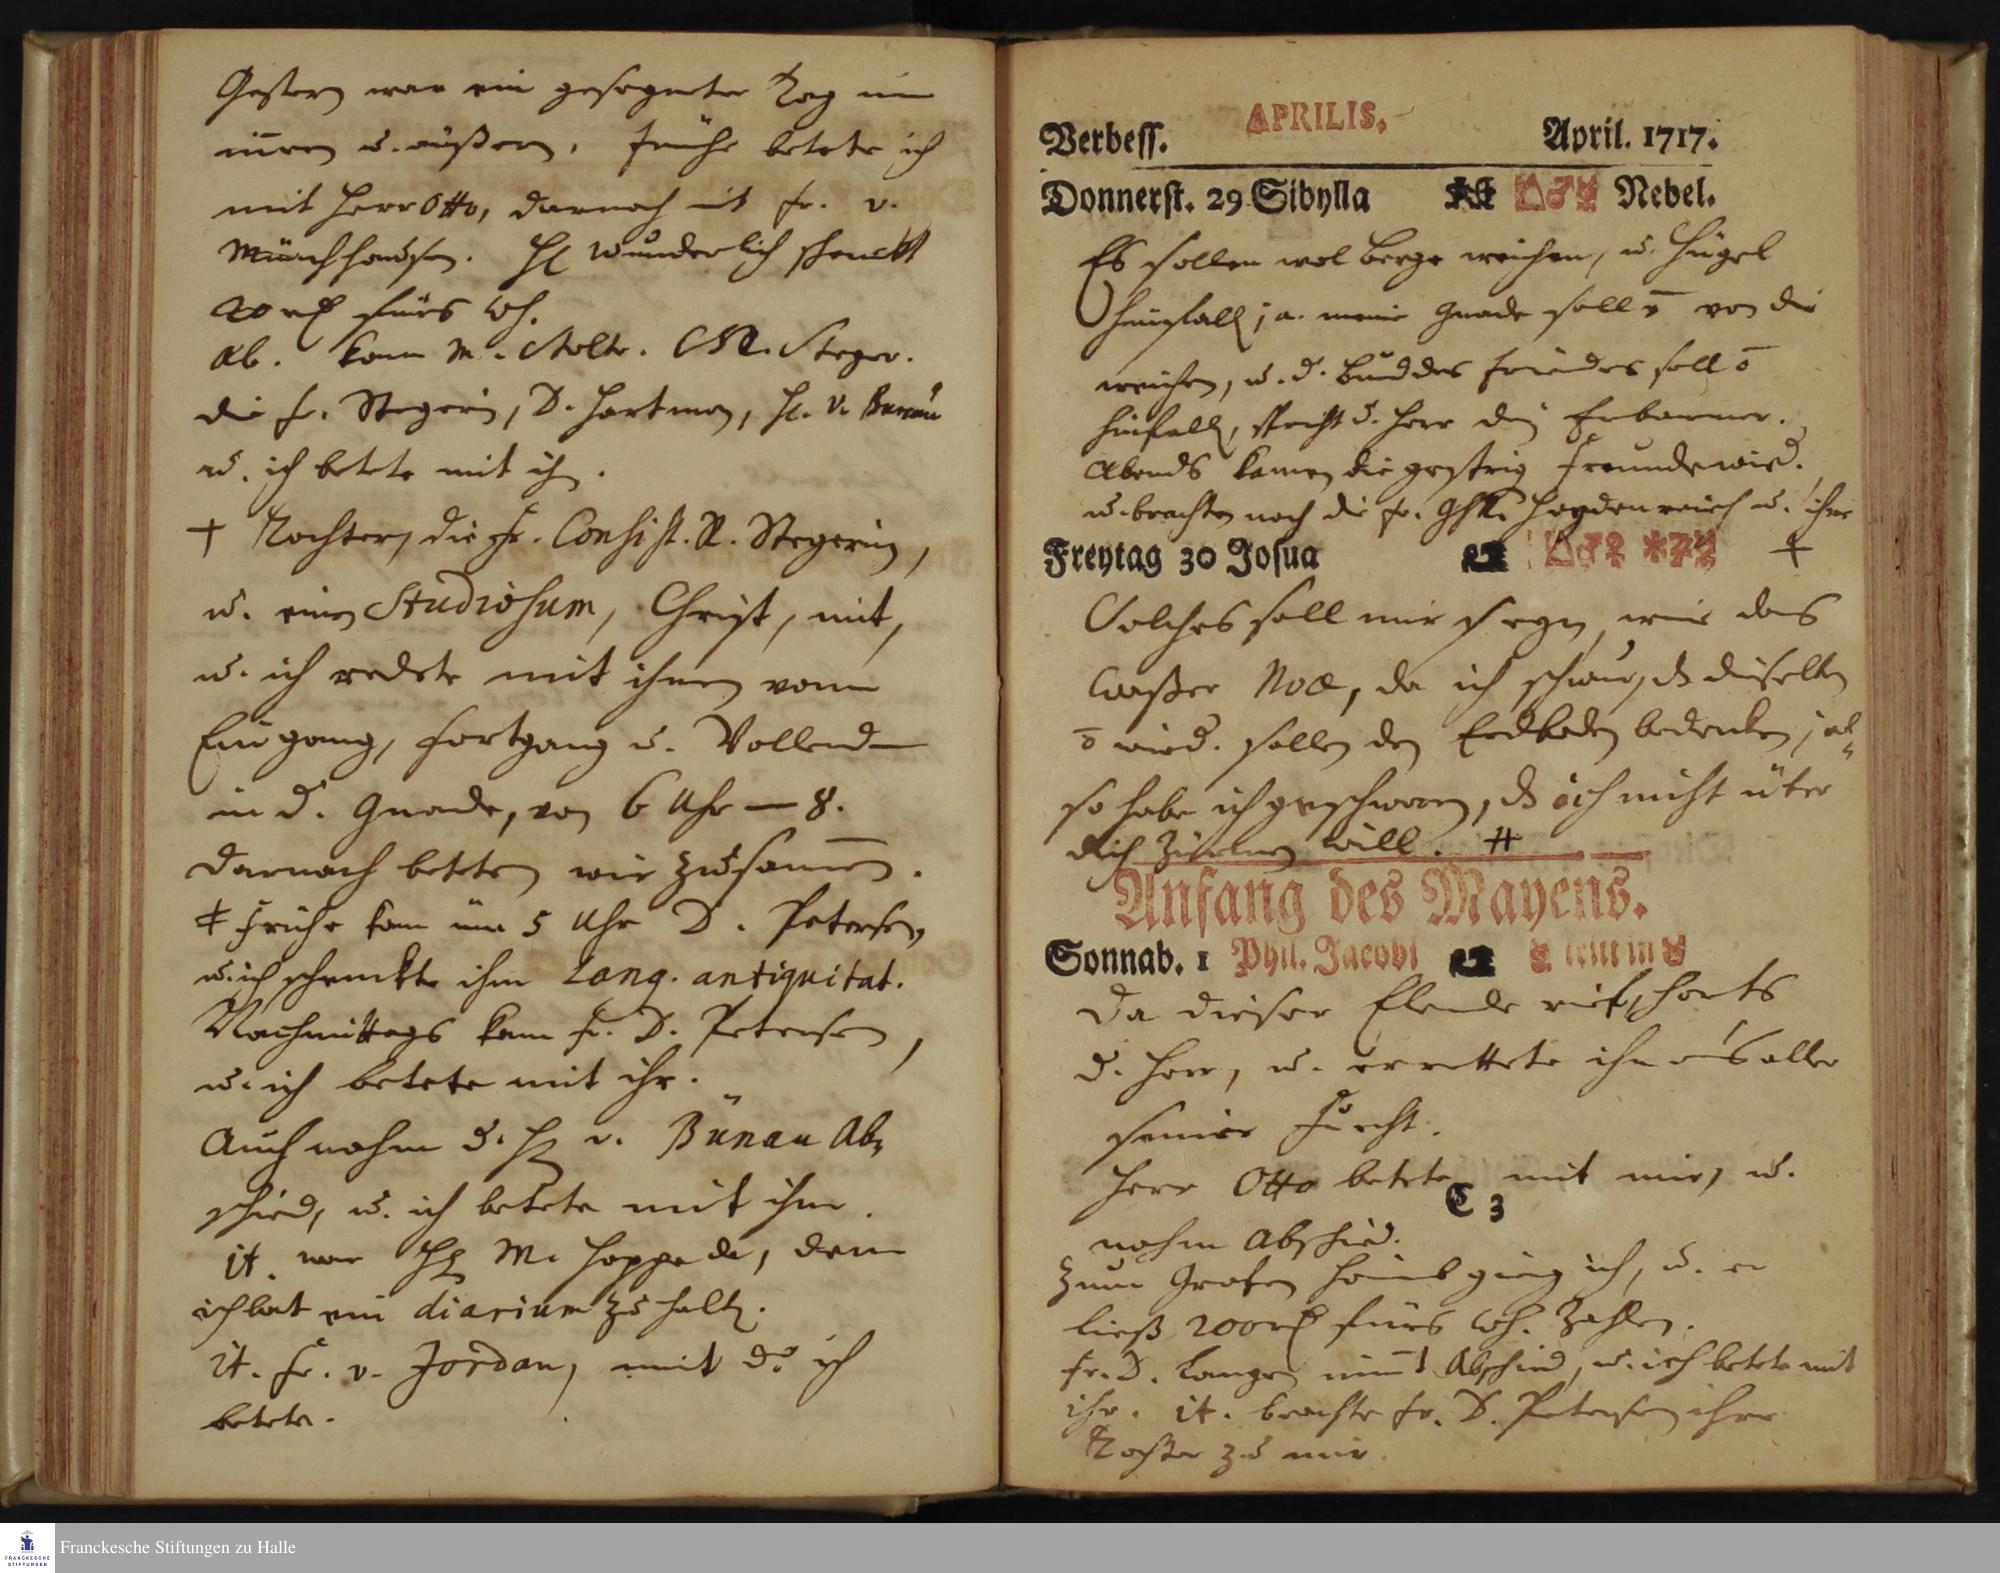 Gestern war ein gesegneter Tag im
innern u. äußern. Frühe betete ich
mit Herr Otto, darnach mit Fr. v.
Münchhausen. H wunderlich schenckt
20 rl fürs Wh.
Ab. kam M. CR. Steger.
die Fr. Stegerin, D. Hartman, H. v. Bunau
u. ich betete mit ihn.
+ Tochter, die Fr. Consist. R. Stegerin,
u. einen Studiosum, Christ, mit,
u. ich redete mit ihnen vom
Eingang, fortgang u. Vollend
in d. Gnade, von 6 Uhr — 8.
Darnach beteten wir zusamen.
‡ Frühe kam um 5 Uhr D. Petersen,
u. ich schenckte ihm Lang. antiquitat.
Nachmittags kam Fr. D. Petersen,
u. ich betete mit ihr.
Auch nahm d. H v. Bünau Ab-
schied, u. ich betete mit ihm.
it. war H M. Hoppe da, dem
ich bat ein diarium zu halten.
it. Fr. v. Jordan, mit der ich
betete.
APRILIS.
Verbess. April. 1717.
Donnerst. 29 Sibylla Nebel.
Es sollen wol Berge weichen, u. Hügel
hinfallen; a. meine Gnade soll ō von dir
weichen, u. d. Bund des Friedes soll ō
hinfallen, spricht d. Herr dein Erbarmer.
Abends kamen die gestrig Freunde wied.
u. brachten noch die Fr. Heydenreich u. ihre
Freytag 30 Josua +
Solches soll mir seyn, wie das
Waßer Noæ, da ich schwur, dß dieselben
ō wied. sollen den Erdboden bedecken; al-
so habe ich geschworen, dß ich nicht über
dich zürnen will. #
Anfang des Mayens.
Sonnab. 1 Phil. Jacobi
Da dieser Elende rief, horts
d. Herr, u. errettete ihn aus aller
seiner Furcht.
Herr Otto betete mit mir, u.
C 3
nahm Abschied.
Zum Grafen ging ich, u. er
ließ 200 rl fürs Wh. zahlen.
Fr. D. Langen nimt Abschied, u. ich betete mit
ihr. it. brachte Fr. D. Petersen ihre
Tochter zu mir.
FRANCKESCHE
STIFTUNGEN
Franckesche Stiftungen zu Halle